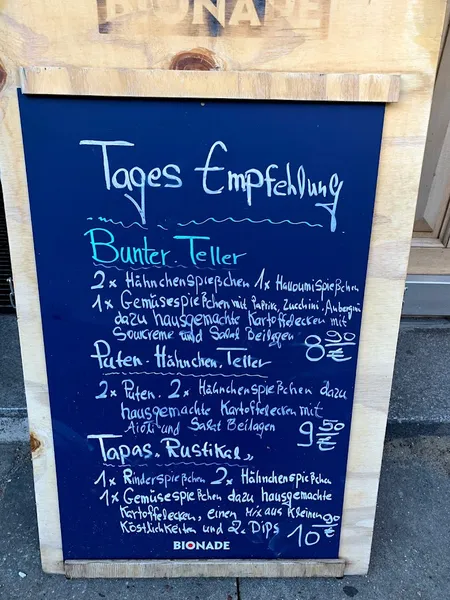 BIONADE
Tages Empfehlung
Bunter. Teller
2x Hähnchenspießchen 1x Halloumispießchen
1x Gemüsespießchen mit Paprika, Zucchini, Aubergine
dazu hausgemachte Kartoffelecken mit
Sourcreme und Salat Beilagen 8 90 €
Puten. Hähnchen. Teller
2x Puten. 2x Hähnchenspießchen dazu
hausgemachte Kartoffelecken mit
Aioli und Salat Beilagen 9 50 €
Tapas. Rustikal
1x Rinderspießchen 2x Hähnchenspießchen
1x Gemüsespießchen dazu hausgemachte
Kartoffelecken, einen Mix aus kleinen
Köstlichkeiten und 2. Dips 10 90 €
BIONADE